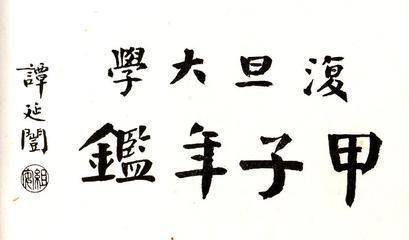 復旦大學
甲子年鑑
譚延闓